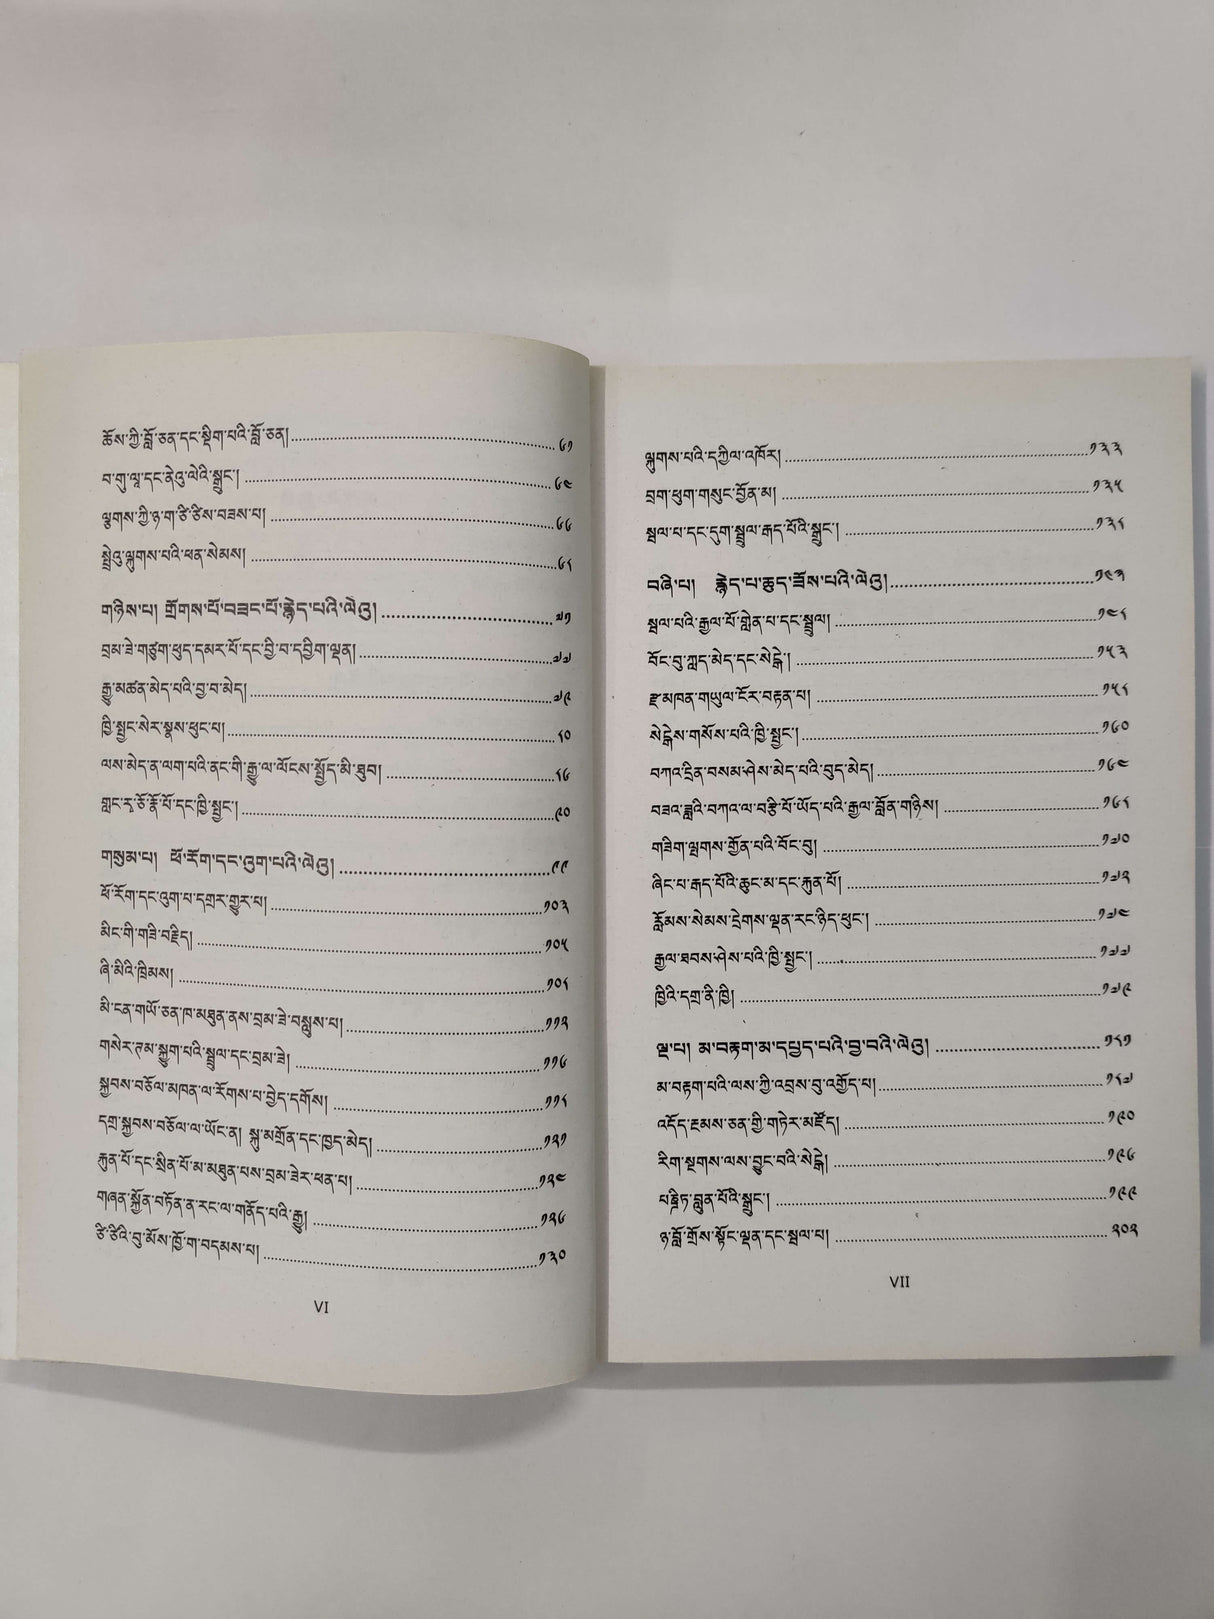 ཆོས་ཀྱི་བློ་ཅན་དང་སྡིག་པའི་བློ་ཅན། ༦༡
བ་གུ་ལཱ་དང་ནེའུ་ལེའི་སྒྲུང་། ༦༤
ལྕགས་ཀྱི་ཉ་ག་ཙི་ཙིས་བཟས་པ། ༦༦
སྤྲེའུ་ལྐུགས་པའི་ཕན་སེམས། ༦༨
གཉིས་པ། གྲོགས་པོ་བཟང་པོ་རྙེད་པའི་ལེའུ། ༧༡
བྲམ་ཟེ་གཙུག་ཕུད་དམར་པོ་དང་བྱི་བ་དབྱིག་ལྡན། ༧༧
རྒྱུ་མཚན་མེད་པའི་བྱ་བ་མེད། ༧༩
ཁྱི་སྤྱང་སེར་སྣས་ཕུང་པ། ༨༠
ལས་མེད་ན་ལག་པའི་ནང་གི་རྒྱུ་ལ་ལོངས་སྤྱོད་མི་ཐུབ། ༨༦
གླང་རྭ་ཅོ་རྣོ་པོ་དང་ཁྱི་སྤྱང་། ༩༠
གསུམ་པ། ཕོ་རོག་དང་འུག་པའི་ལེའུ། ༩༩
ཕོ་རོག་དང་འུག་པ་དགྲར་གྱུར་པ། ༡༠༣
མིང་གི་གཟི་བརྗིད། ༡༠༥
ཞི་མིའི་ཁྲིམས། ༡༠༨
མི་ངན་གཡོ་ཅན་ཁ་མཐུན་ནས་བྲམ་ཟེ་བསླུས་པ། ༡༡༢
གསེར་ཊམ་སྐྱུག་པའི་སྦྲུལ་དང་བྲམ་ཟེ། ༡༡༦
སྐྱབས་བཅོལ་མཁན་ལ་རོགས་པ་བྱེད་དགོས། ༡༡༨
དགྲ་སྐྱབས་བཅོལ་ལ་ཡོང་ན། སྐུ་མགྲོན་དང་ཁྱད་མེད། ༡༢༡
རྐུན་པོ་དང་སྲིན་པོ་མ་མཐུན་པས་བྲམ་ཟེར་ཕན་པ། ༡༢༤
གཞན་སྐྱོན་བཏོན་ན་རང་ལ་གནོད་པའི་རྒྱུ། ༡༢༦
ཙི་ཙིའི་བུ་མོས་ཁྱོ་ག་བདམས་པ། ༡༣༠
VI
ལྐུགས་པའི་དཀྱིལ་འཁོར། ༡༣༣
བྲག་ཕུག་གསུང་བྱོན་མ། ༡༣༥
སྦལ་པ་དང་དུག་སྦྲུལ་རྒད་པོའི་སྒྲུང་། ༡༣༨
བཞི་པ། རྙེད་པ་ཆུད་ཟོས་པའི་ལེའུ། ༡༤༣
སྦལ་པའི་རྒྱལ་པོ་གླེན་པ་དང་སྦྲུལ། ༡༤༨
བོང་བུ་ཀླད་མེད་དང་སེངྒེ་། ༡༥༣
རྫ་མཁན་གཡུལ་ངོར་བརྟན་པ། ༡༥༨
སེངྒེས་གསོས་པའི་ཁྱི་སྤྱང་། ༡༦༠
བཀའ་དྲིན་བསམ་ཤེས་མེད་པའི་བུད་མེད། ༡༦༤
བཟའ་ཟླའི་བཀའ་ལ་བརྩི་པོ་ཡོད་པའི་རྒྱལ་བློན་གཉིས། ༡༦༨
གཟིག་ལྤགས་གྱོན་པའི་བོང་བུ། ༡༧༠
ཞིང་པ་རྒད་པོའི་ཆུང་མ་དང་རྐུན་པོ། ༡༧༢
རློམས་སེམས་དྲེགས་ལྡན་རང་ཉིད་ཕུང་། ༡༧༤
རྒྱལ་ཐབས་ཤེས་པའི་ཁྱི་སྤྱང་། ༡༧༧
ཁྱིའི་དགྲ་ནི་ཁྱི། ༡༧༩
ལྔ་པ། མ་བརྟག་མ་དཔྱད་པའི་བྱ་བའི་ལེའུ། ༡༨༡
མ་བརྟག་པའི་ལས་ཀྱི་འབྲས་བུ་འགྱོད་པ། ༡༨༧
འདོད་རྔམས་ཅན་གྱི་གཏེར་མཛོད། ༡༩༠
རིག་སྔགས་ལས་བྱུང་བའི་སེངྒེ། ༡༩༦
པཎྜིཏ་བླུན་པོའི་སྒྲུང་། ༡༩༩
ཉ་བློ་གྲོས་སྟོང་ལྡན་དང་སྦལ་པ། ༢༠༢
VII